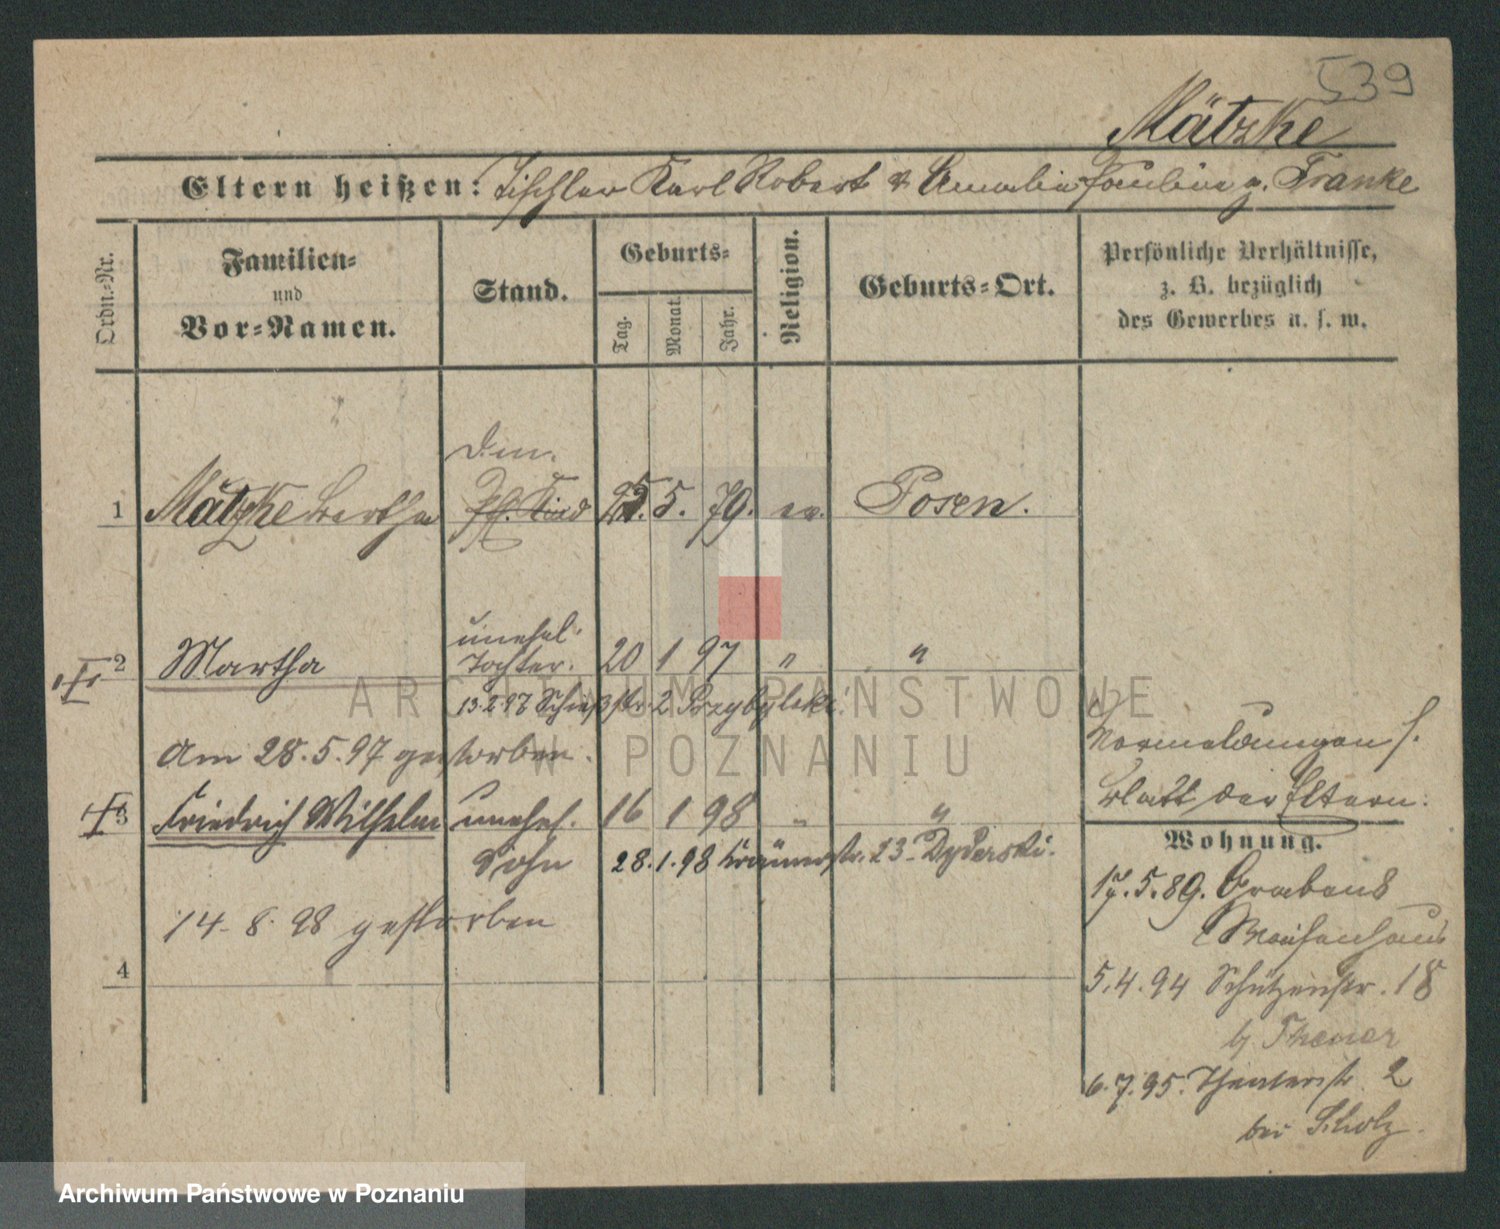 539
Mätzke
Eltern heißen: Tischler Karl Robert & Amalie Pauline g. Franke
Ordn.-Nr.
Familien-
und
Vor-Namen.
Stand.
Geburts-
Tag.
Monat.
Jahr.
Religion.
Geburts-Ort.
Persönliche Verhältnisse,
z. B. bezüglich
des Gewerbes u. s. w.
Din.
1 Mätzke Bertha Pfl. Kind 5. 79. ev. Posen.
unehel.
2 Martha Tochter. 20 1 97 " "
13.2.97 Schießstr. 2 Przybylski.
Am 28.5.97 gestorben.
3 Friedrich Wilhelm unehel. 16 1 98 " "
Sohn 28.1.98 Krämerstr. 23 Dyderski.
14.8.98 gestorben
4
Vormeldungen s.
Blatt der Eltern.
Wohnung.
17.5.89. Graben 8
Waisenhaus
5.4.94 Schützenstr. 18
b/ Theuer
6.7.95. Theaterstr. 2
bei Scholz.
ARCHIWUM PAŃSTWOWE
W POZNANIU
Archiwum Państwowe w Poznaniu